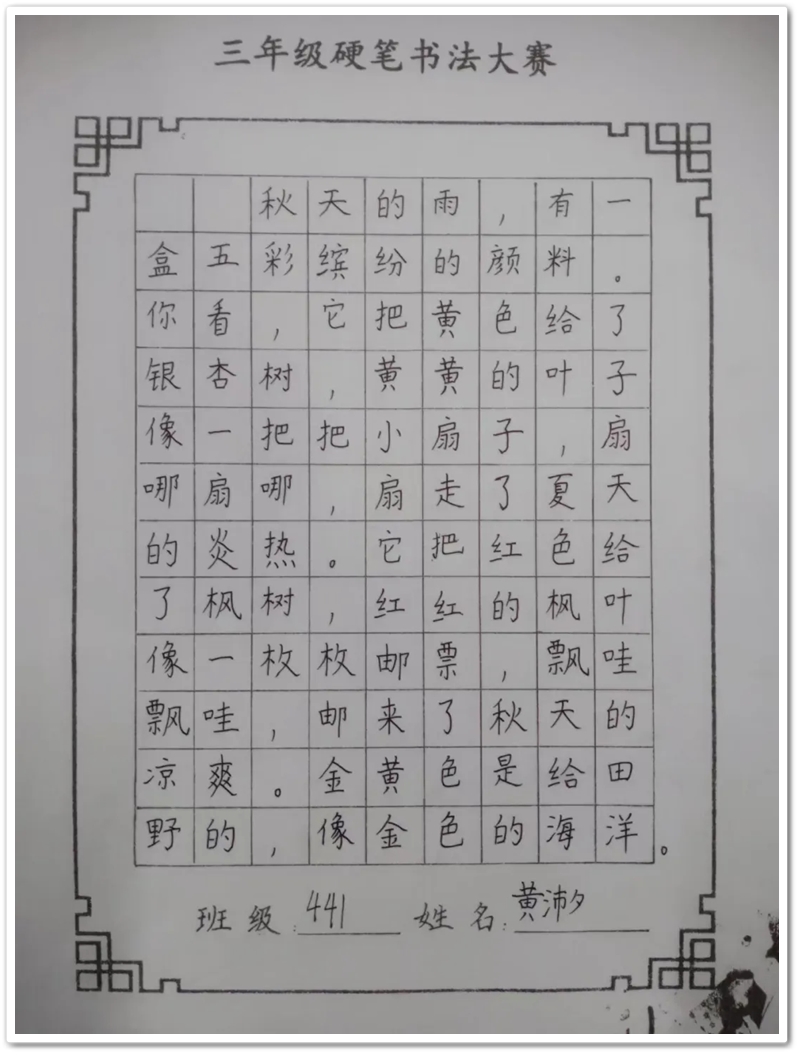 三年级硬笔书法大赛
秋天的雨，有一
盒五彩缤纷的颜料。
你看，它把黄色给了
银杏树，黄黄的叶子
像一把把小扇子，扇
哪扇哪，扇走了夏天
的炎热。它把红色给
了枫树，红红的枫叶
像一枚枚邮票，飘哇
飘哇，邮来了秋天的
凉爽。金黄色是给田
野的，像金色的海洋。
班级:441 姓名:黄沛夕